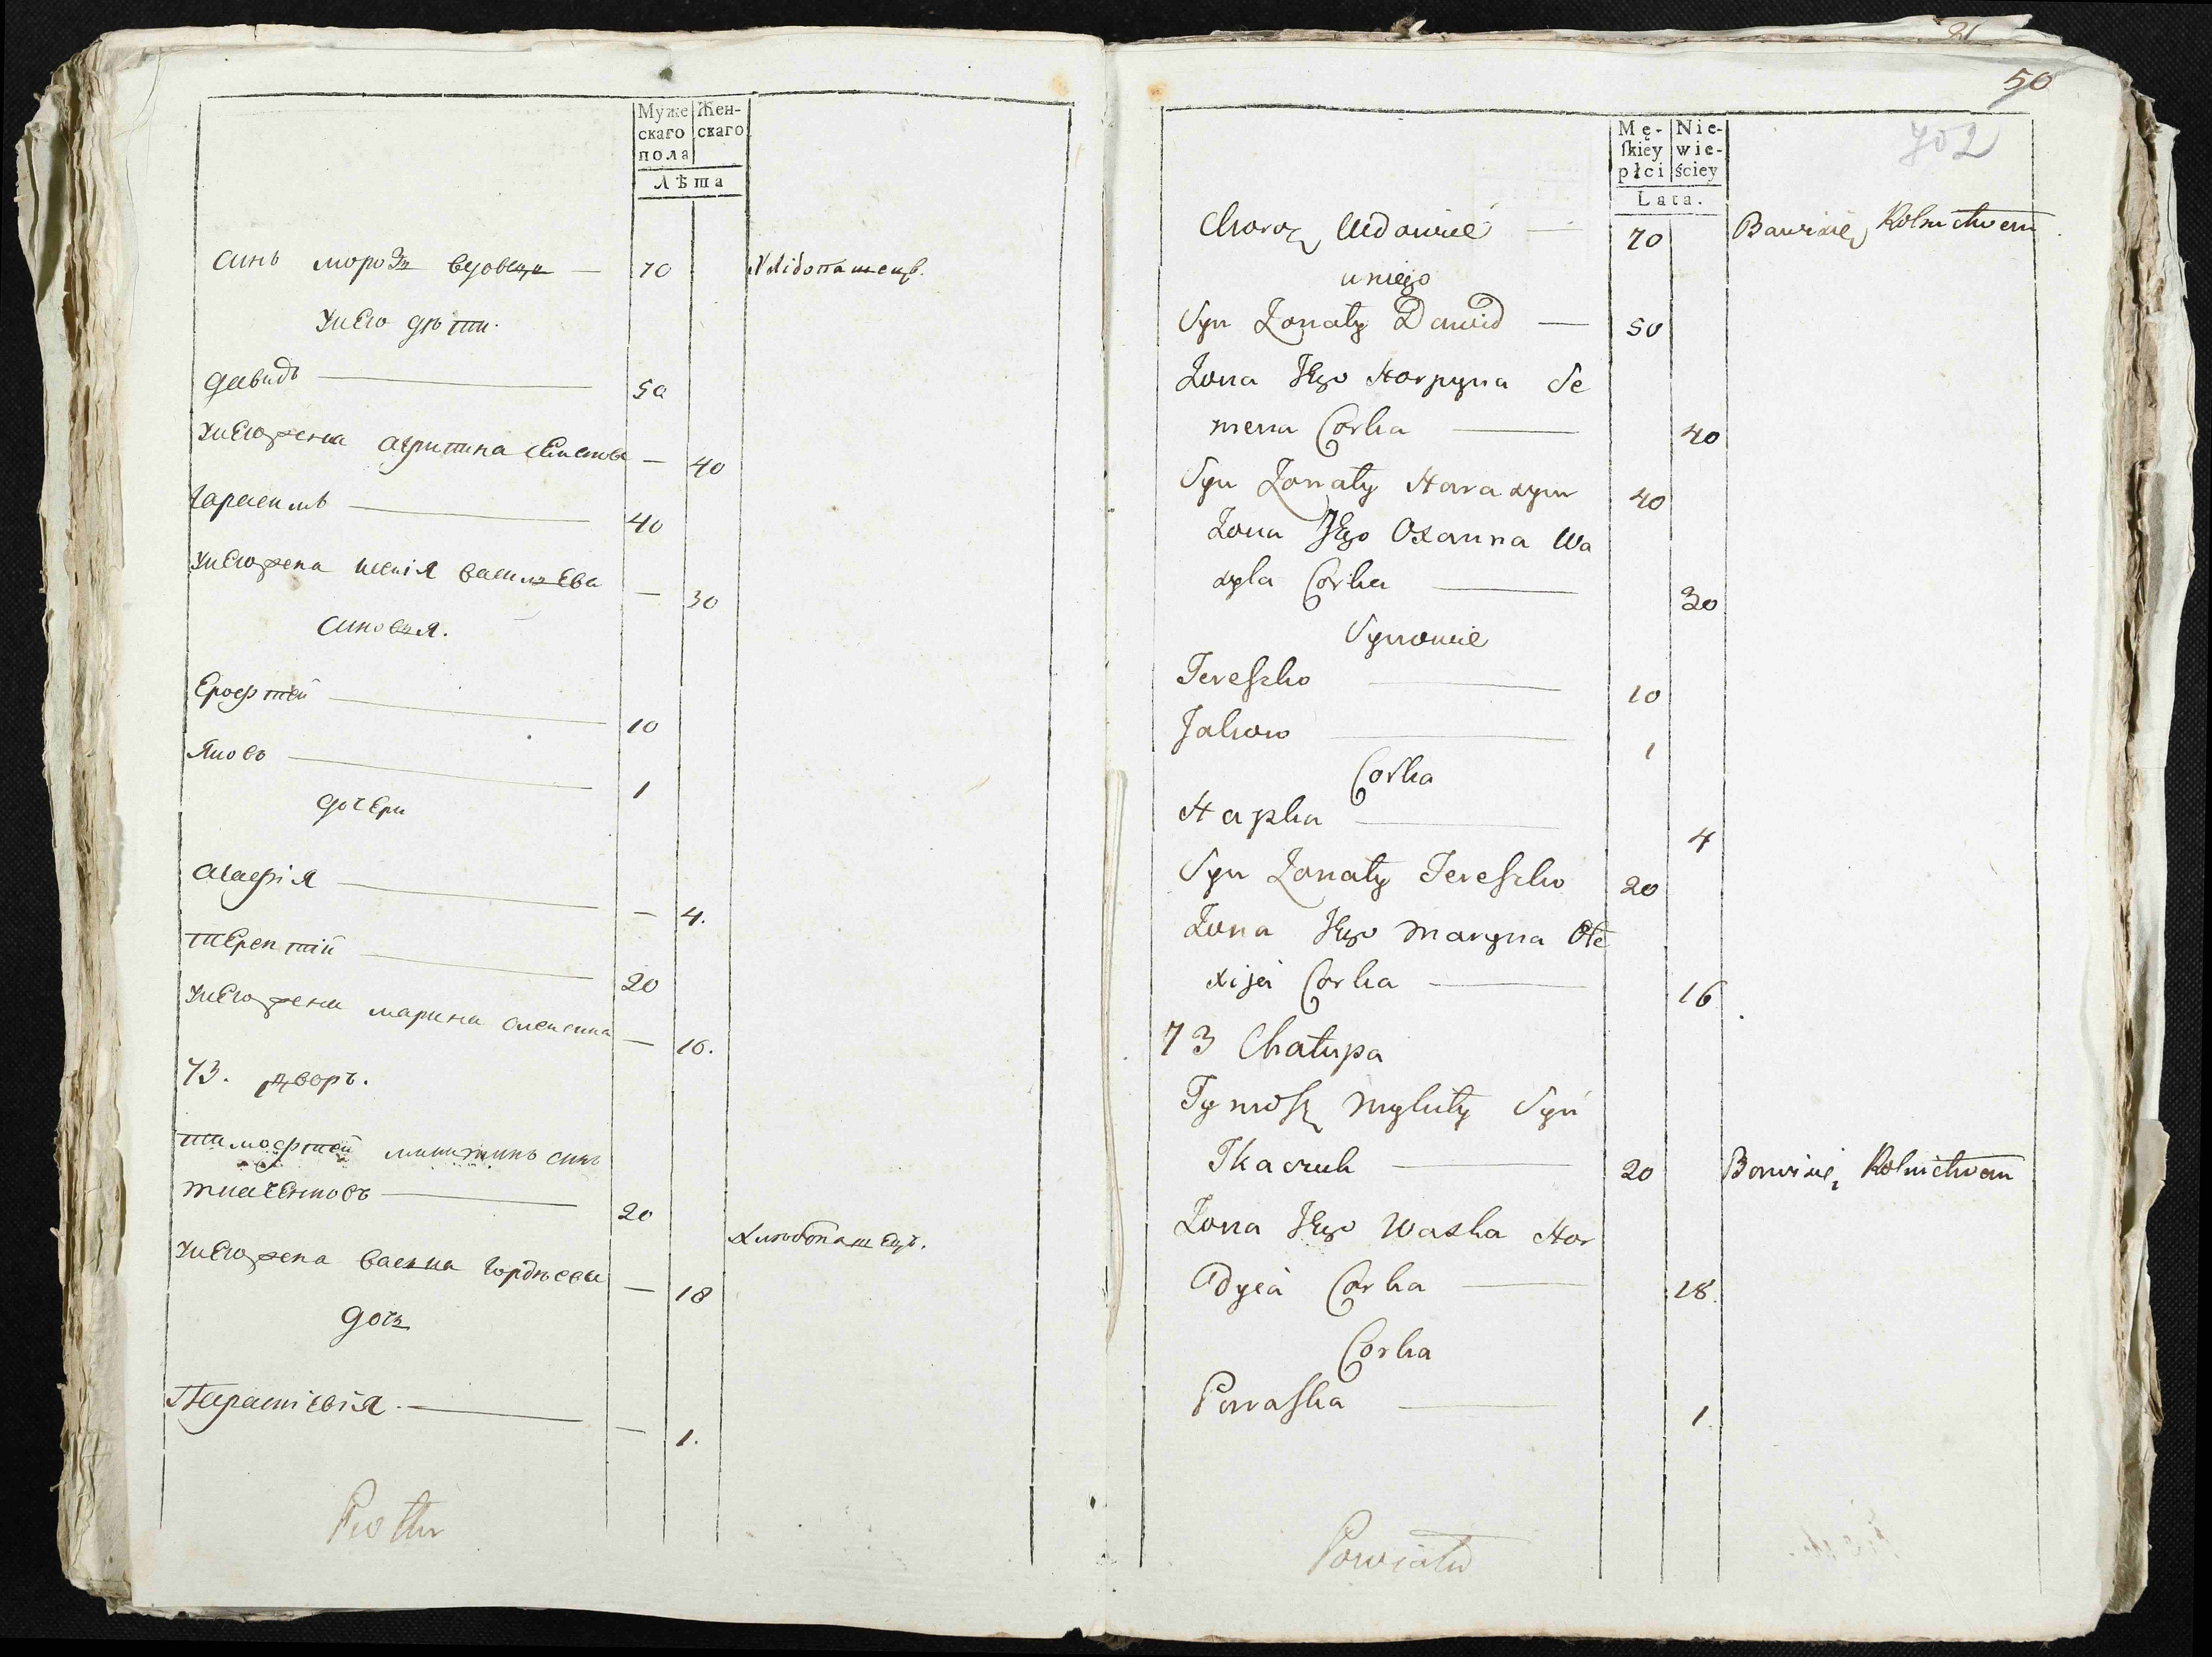 Муже
скаго
пола
Жен-
скаго
Лѣта
синъ морозъ вдовецъ — 70 хлiбопашецъ.
у него дѣти.
давидъ — 50
у него жена агрипина — 40
гарасимъ — 40
у него жена ксенiя васильева — 30
синовья.
Ерофтей — 10
Яковъ — 1
дочери
агафiя — 4.
терентiй — 20
у него жена марина алексеева — 16.
73. дворъ.
тимофтей микитинъ синъ
ткаченковъ — 20
хлѣбопашецъ.
у него жена васька гордѣева — 18
дочь
Параскiевiя. — 1.
Piotlu
50
702
Mę-
ſkiey
płci
Nie-
wie-
ściey
Lata.
Moroz Udowiec — 70 Bawisię Rolnictwem
u niego
Syn Zonaty Dawid — 50
Zona Jego Horpyna Se
mena Corka — 40
Syn Zonaty Harasym 40
Zona Jego Oxanna Wa
syla Corka — 30
Synowie
Tereſzko — 10
Jakow — 1
Corka
Hapka — 4
Syn Zonaty Tereſzko 20
Zona Jego Maryna Ole
xija Corka — 16
73 Chałupa
Tymoſz Mykity Syn
Tkaczuk — 20 Bawisię Rolnictwem
Zona Jego Waska Hor
dyia Corka — 18
Corka
Paraſka — 1
Powiatu